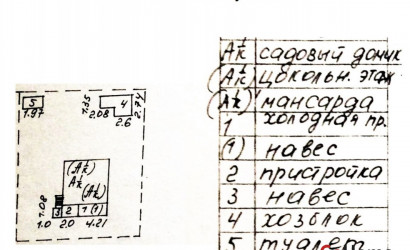 5
1.97
7.35
4
2.08
2.6
2.74
(А1/к)
А1/к
(А1/к)
3 2 1 (1)
1.08
1.0 2.0 4.21
А1/к садовый домик
(А1/к) цокольн. этаж
(А1/к)' мансарда
1 холодная пр.
(1) навес
2 пристройка
3 навес
4 хозблок
5 туалет